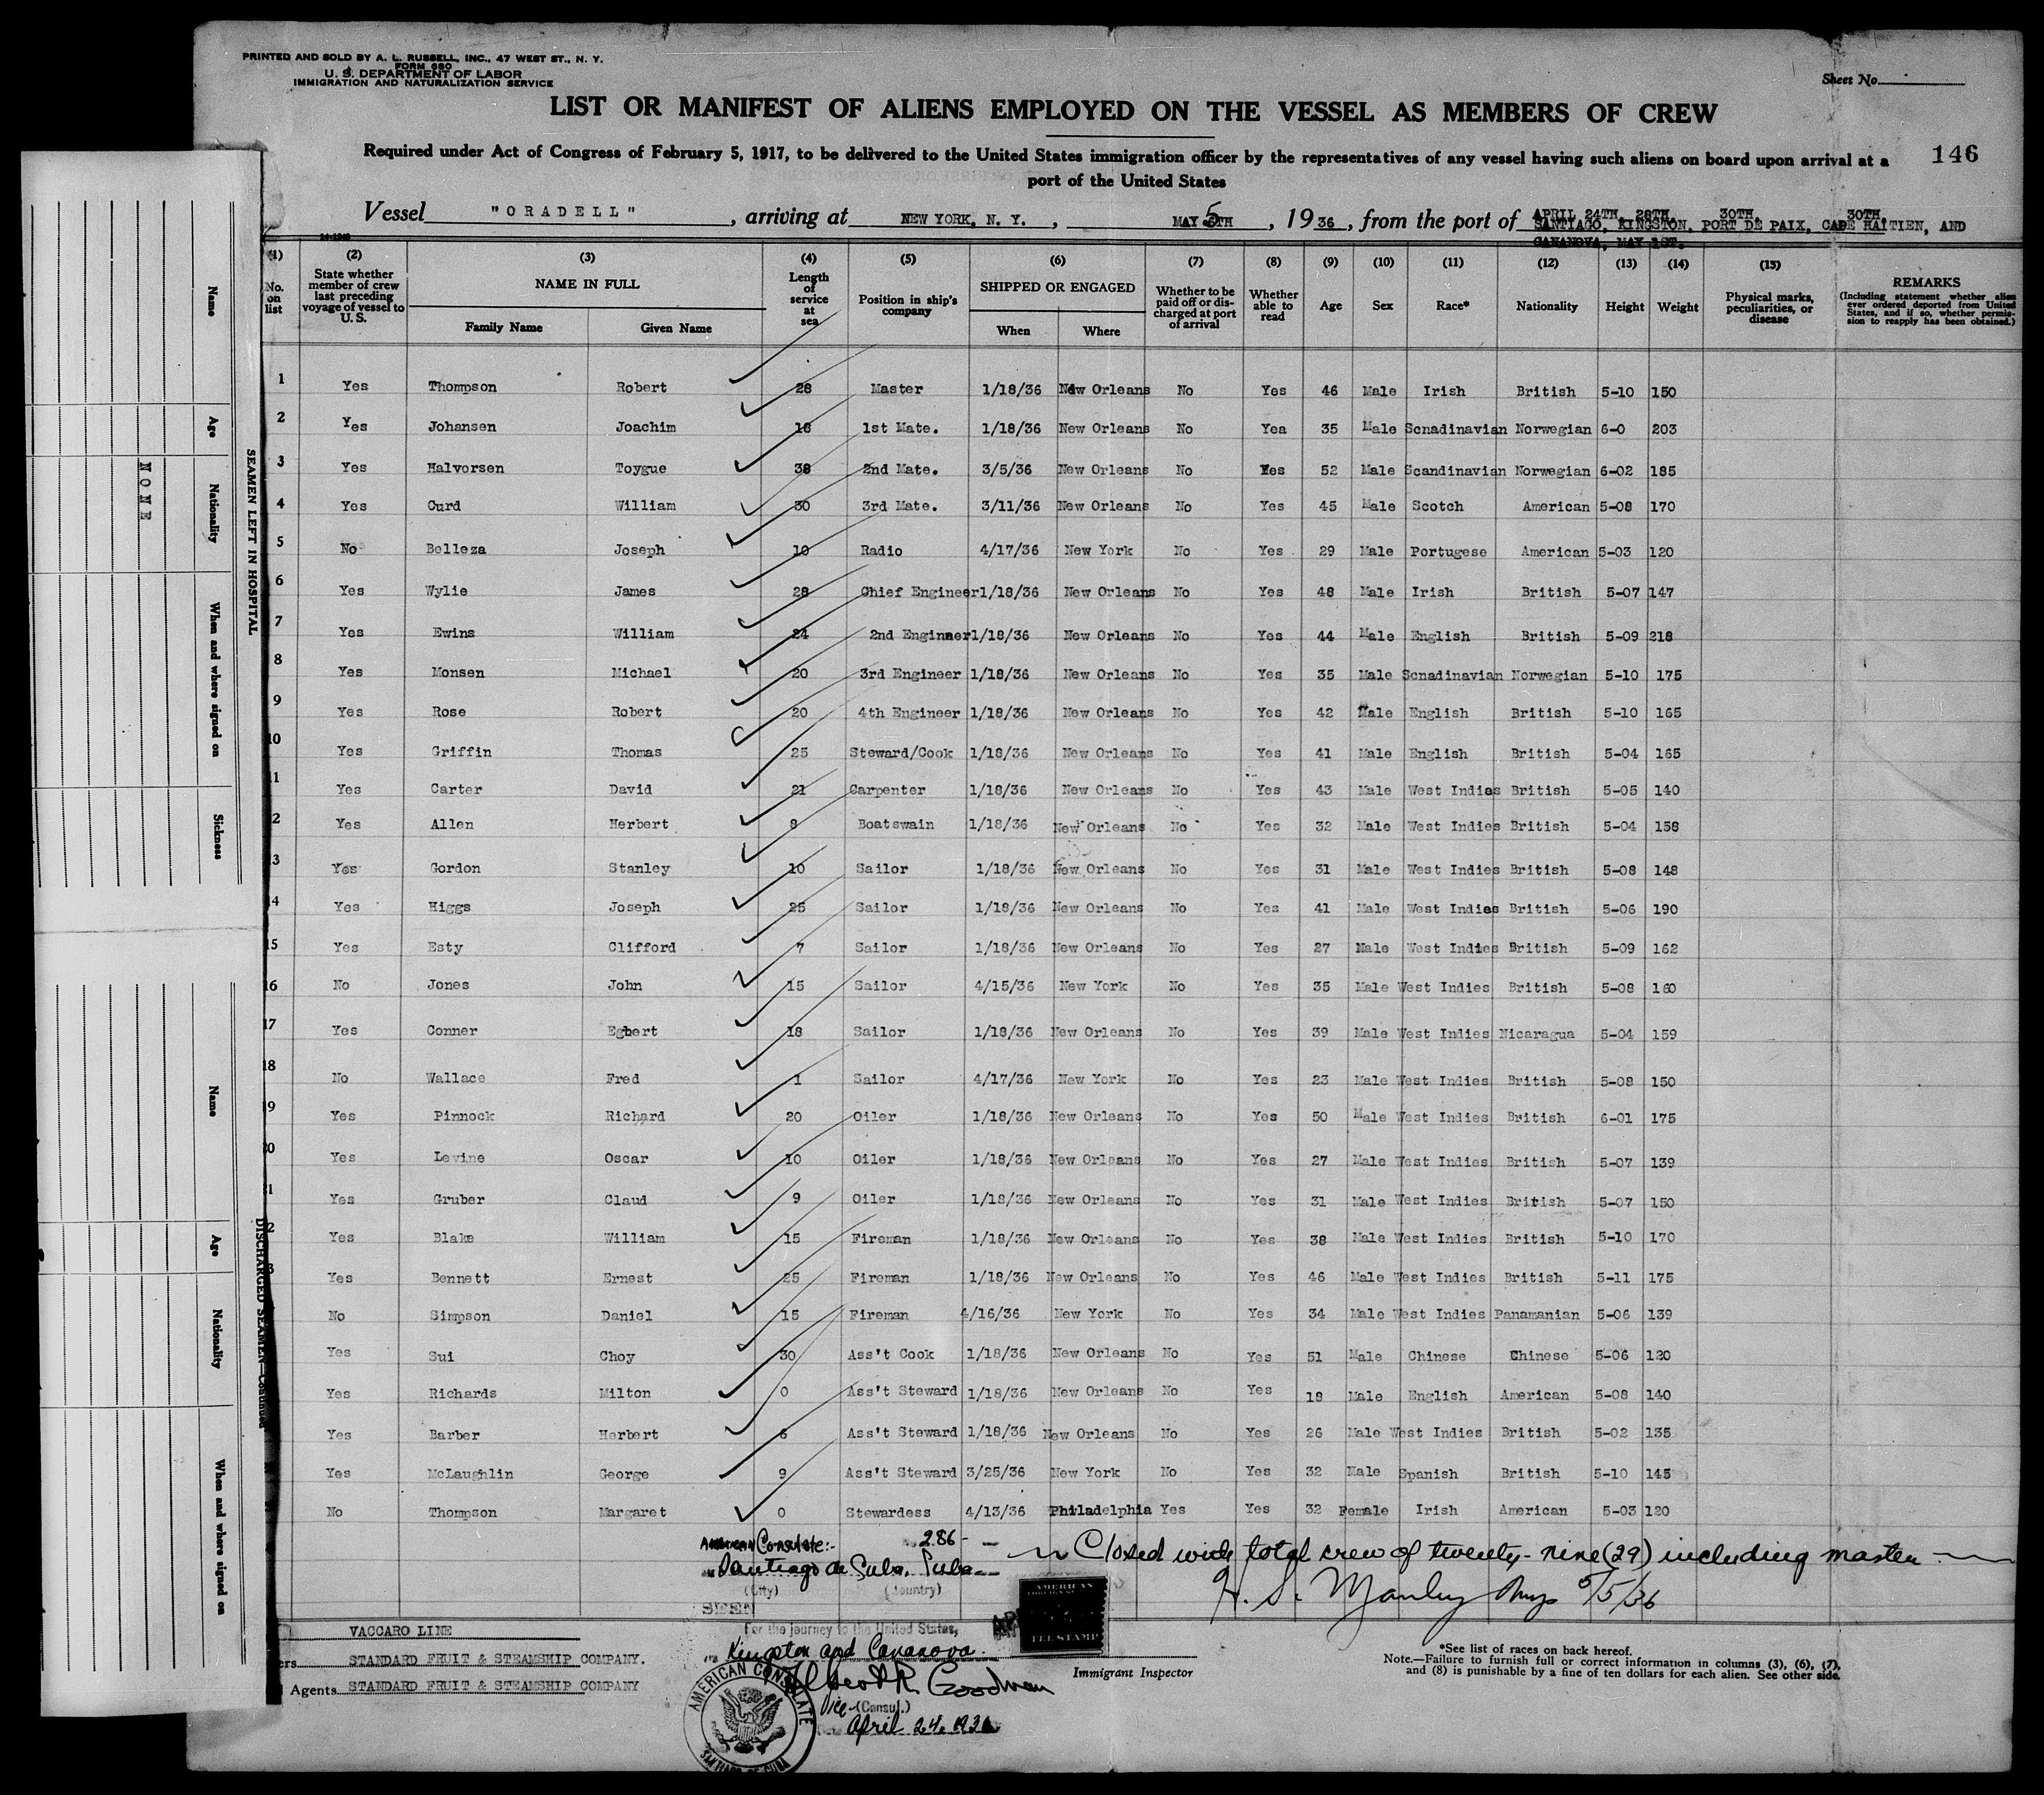 PRINTED AND SOLD BY A. L. RUSSELL, INC., 47 WEST ST., N. Y.
FORM 680
U. S. DEPARTMENT OF LABOR
IMMIGRATION AND NATURALIZATION SERVICE
Sheet No.
LIST OR MANIFEST OF ALIENS EMPLOYED ON THE VESSEL AS MEMBERS OF CREW
146
Required under Act of Congress of February 5, 1917, to be delivered to the United States immigration officer by the representatives of any vessel having such aliens on board upon arrival at a
port of the United States
APRIL 24TH, 28TH, 30TH, 30TH,
Vessel "ORADELL", arriving at NEW YORK, N. Y., MAY 5TH, 1936, from the port of SANTIAGO, KINGSTON, PORT DE PAIX, CAPE HAITIEN, AND
CANANOVA, MAY 1ST.
(1) No. on list
(2) State whether member of crew last preceding voyage of vessel to U. S.
(3) NAME IN FULL Family Name Given Name
(4) Length of service at sea
(5) Position in ship's company
(6) SHIPPED OR ENGAGED When Where
(7) Whether to be paid off or discharged at port of arrival
(8) Whether able to read
(9) Age
(10) Sex
(11) Race*
(12) Nationality
(13) Height
(14) Weight
(15) Physical marks, peculiarities, or disease
REMARKS (Including statement whether alien ever ordered deported from United States, and if so, whether permission to reapply has been obtained.)
1 Yes Thompson Robert 28 Master 1/18/36 New Orleans No Yes 46 Male Irish British 5-10 150
2 Yes Johansen Joachim 18 1st Mate. 1/18/36 New Orleans No Yea 35 Male Scnadinavian Norwegian 6-0 203
3 Yes Halvorsen Toygue 38 2nd Mate. 3/5/36 New Orleans No Yes 52 Male Scandinavian Norwegian 6-02 185
4 Yes Curd William 30 3rd Mate. 3/11/36 New Orleans No Yes 45 Male Scotch American 5-08 170
5 No Belleza Joseph 10 Radio 4/17/36 New York No Yes 29 Male Portugese American 5-03 120
6 Yes Wylie James 28 Chief Engineer 1/18/36 New Orleans No Yes 48 Male Irish British 5-07 147
7 Yes Ewins William 24 2nd Enginaer 1/18/36 New Orleans No Yes 44 Male English British 5-09 218
8 Yes Monsen Michael 20 3rd Engineer 1/18/36 New Orleans No Yes 35 Male Scnadinavian Norwegian 5-10 175
9 Yes Rose Robert 20 4th Engineer 1/18/36 New Orleans No Yes 42 Male English British 5-10 165
10 Yes Griffin Thomas 25 Steward/Cook 1/18/36 New Orleans No Yes 41 Male English British 5-04 165
11 Yes Carter David 21 Carpenter 1/18/36 New Orleans No Yes 43 Male West Indies British 5-05 140
2 Yes Allen Herbert 8 Boatswain 1/18/36 New Orleans No Yes 32 Male West Indies British 5-04 158
3 Yes Gordon Stanley 10 Sailor 1/18/36 New Orleans No Yes 31 Male West Indies British 5-08 148
4 Yes Higgs Joseph 25 Sailor 1/18/36 New Orleans No Yes 41 Male West Indies British 5-06 190
15 Yes Esty Clifford 7 Sailor 1/18/36 New Orleans No Yes 27 Male West Indies British 5-09 162
16 No Jones John 15 Sailor 4/15/36 New York No Yes 35 Male West Indies British 5-08 160
17 Yes Conner Egbert 18 Sailor 1/18/36 New Orleans No Yes 39 Male West Indies Nicaragua 5-04 159
18 No Wallace Fred 1 Sailor 4/17/36 New York No Yes 23 Male West Indies British 5-08 150
19 Yes Pinnock Richard 20 Oiler 1/18/36 New Orleans No Yes 50 Male West Indies British 6-01 175
20 Yes Levine Oscar 10 Oiler 1/18/36 New Orleans No Yes 27 Male West Indies British 5-07 139
21 Yes Gruber Claud 9 Oiler 1/18/36 New Orleans No Yes 31 Male West Indies British 5-07 150
2 Yes Blake William 15 Fireman 1/18/36 New Orleans No Yes 38 Male West Indies British 5-10 170
3 Yes Bennett Ernest 25 Fireman 1/18/36 New Orleans No Yes 46 Male West Indies British 5-11 175
No Simpson Daniel 15 Fireman 4/16/36 New York No Yes 34 Male West Indies Panamanian 5-06 139
Yes Sui Choy 30 Ass't Cook 1/18/36 New Orleans No Yes 51 Male Chinese Chinese 5-06 120
Yes Richards Milton 0 Ass't Steward 1/18/36 New Orleans No Yes 18 Male English American 5-08 140
Yes Barber Herbert 6 Ass't Steward 1/18/36 New Orleans No Yes 26 Male West Indies British 5-02 135
Yes McLaughlin George 9 Ass't Steward 3/25/36 New York No Yes 32 Male Spanish British 5-10 145
No Thompson Margaret 0 Stewardess 4/13/36 Philadelphia Yes Yes 32 Female Irish American 5-03 120
American Consulate:- 286-
Santiago de Cuba, Cuba
(City) (Country)
SEEN
Closed with total crew of twenty-nine (29) including master
H. S. Manley 5/5/36
For the journey to the United States,
Kingston and Cananova
Albert R. Goodman
Vice-(Consul)
April 24, 1936
AMERICAN CONSULATE
SANTIAGO DE CUBA
AMERICAN
FEE STAMP
VACCARO LINE
ers STANDARD FRUIT & STEAMSHIP COMPANY.
Agents STANDARD FRUIT & STEAMSHIP COMPANY
Immigrant Inspector
*See list of races on back hereof.
Note.—Failure to furnish full or correct information in columns (3), (6), (7), and (8) is punishable by a fine of ten dollars for each alien. See other side.
SEAMEN LEFT IN HOSPITAL
Name
Age
Nationality
When and where signed on
Sickness
NONE
DISCHARGED SEAMEN—Continued
Name
Age
Nationality
When and where signed on